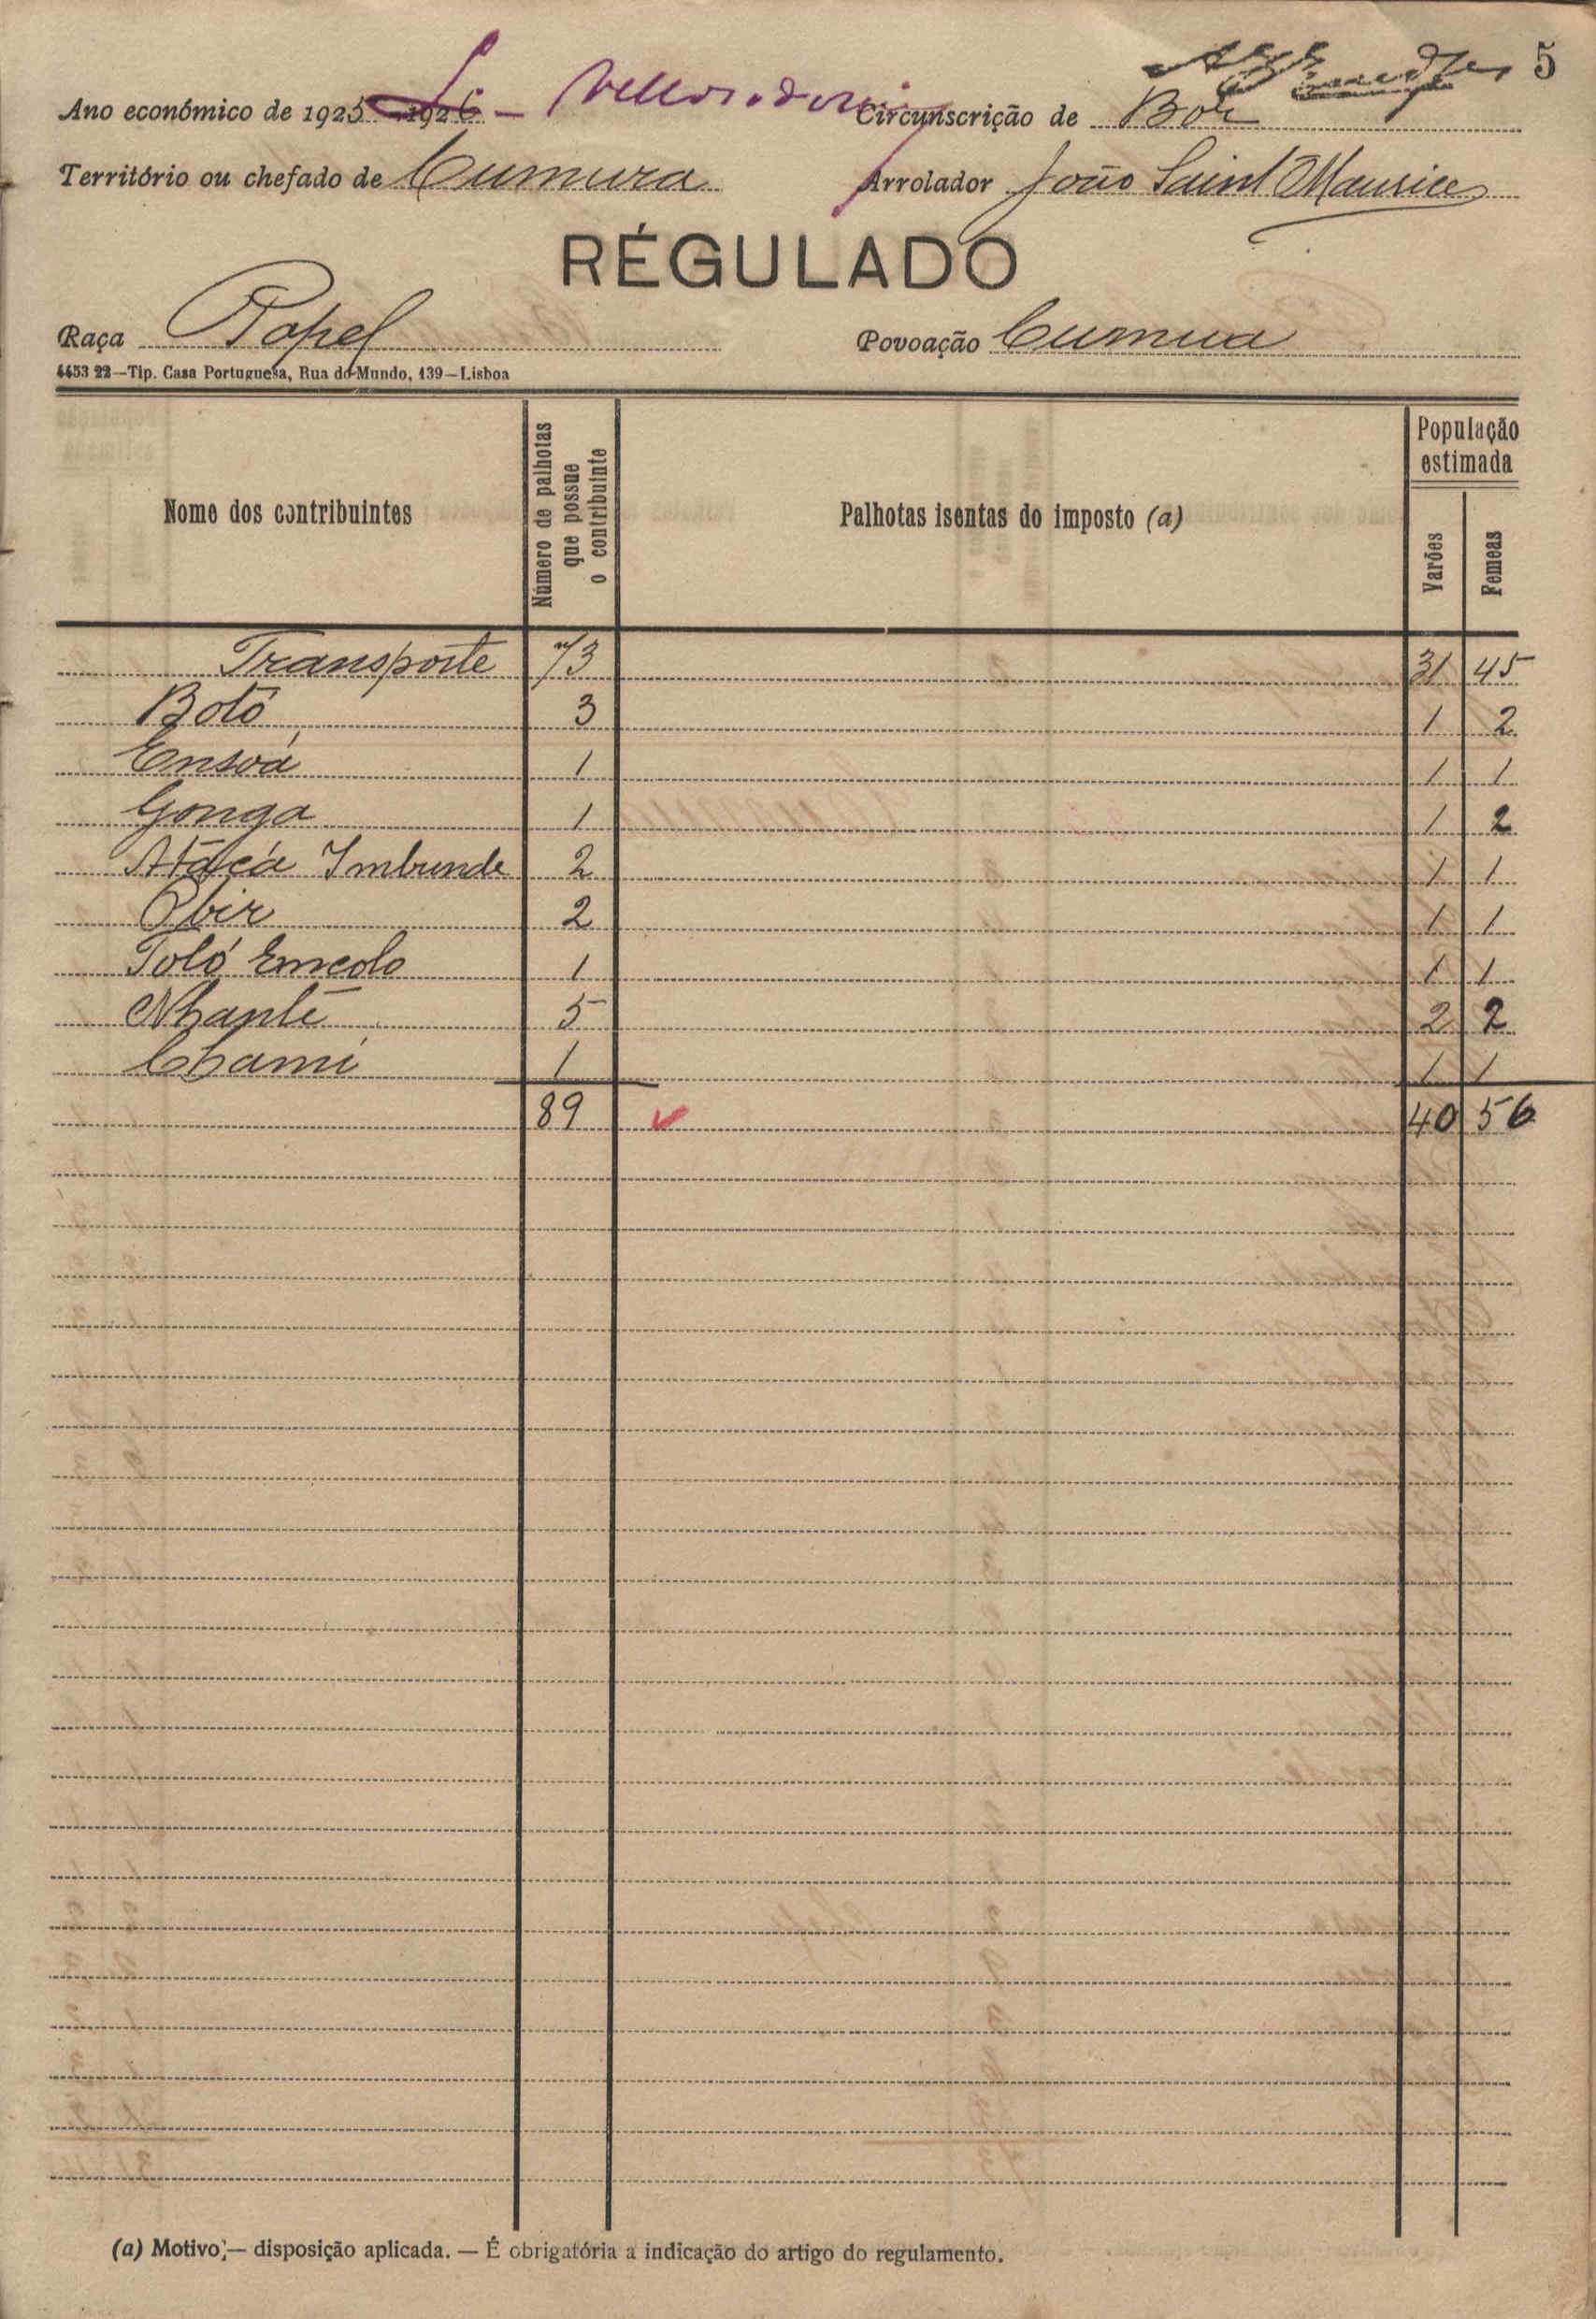 5
Ano económico de 1925-1926 Circunscrição de Bor
Território ou chefado de Cumura Arrolador João Saint Maurice
RÉGULADO
Raça Papel Povoação Cumura
4453 22—Tip. Casa Portuguesa, Rua do Mundo, 139—Lisboa
Nome dos contribuintes Número de palhotas que possue o contribuinte Palhotas isentas do imposto (a) População estimada Varões Femeas
Transporte 73 31 45
Botô 3 1 2
Ensoá 1 1 1
Gonga 1 1 2
Atacá Imbunde 2 1 1
Obir 2 1 1
Toló Emcolo 1 1 1
Nhanté 5 2 2
Chami 1 1 1
89 40 56
(a) Motivo;— disposição aplicada. — É obrigatória a indicação do artigo do regulamento.